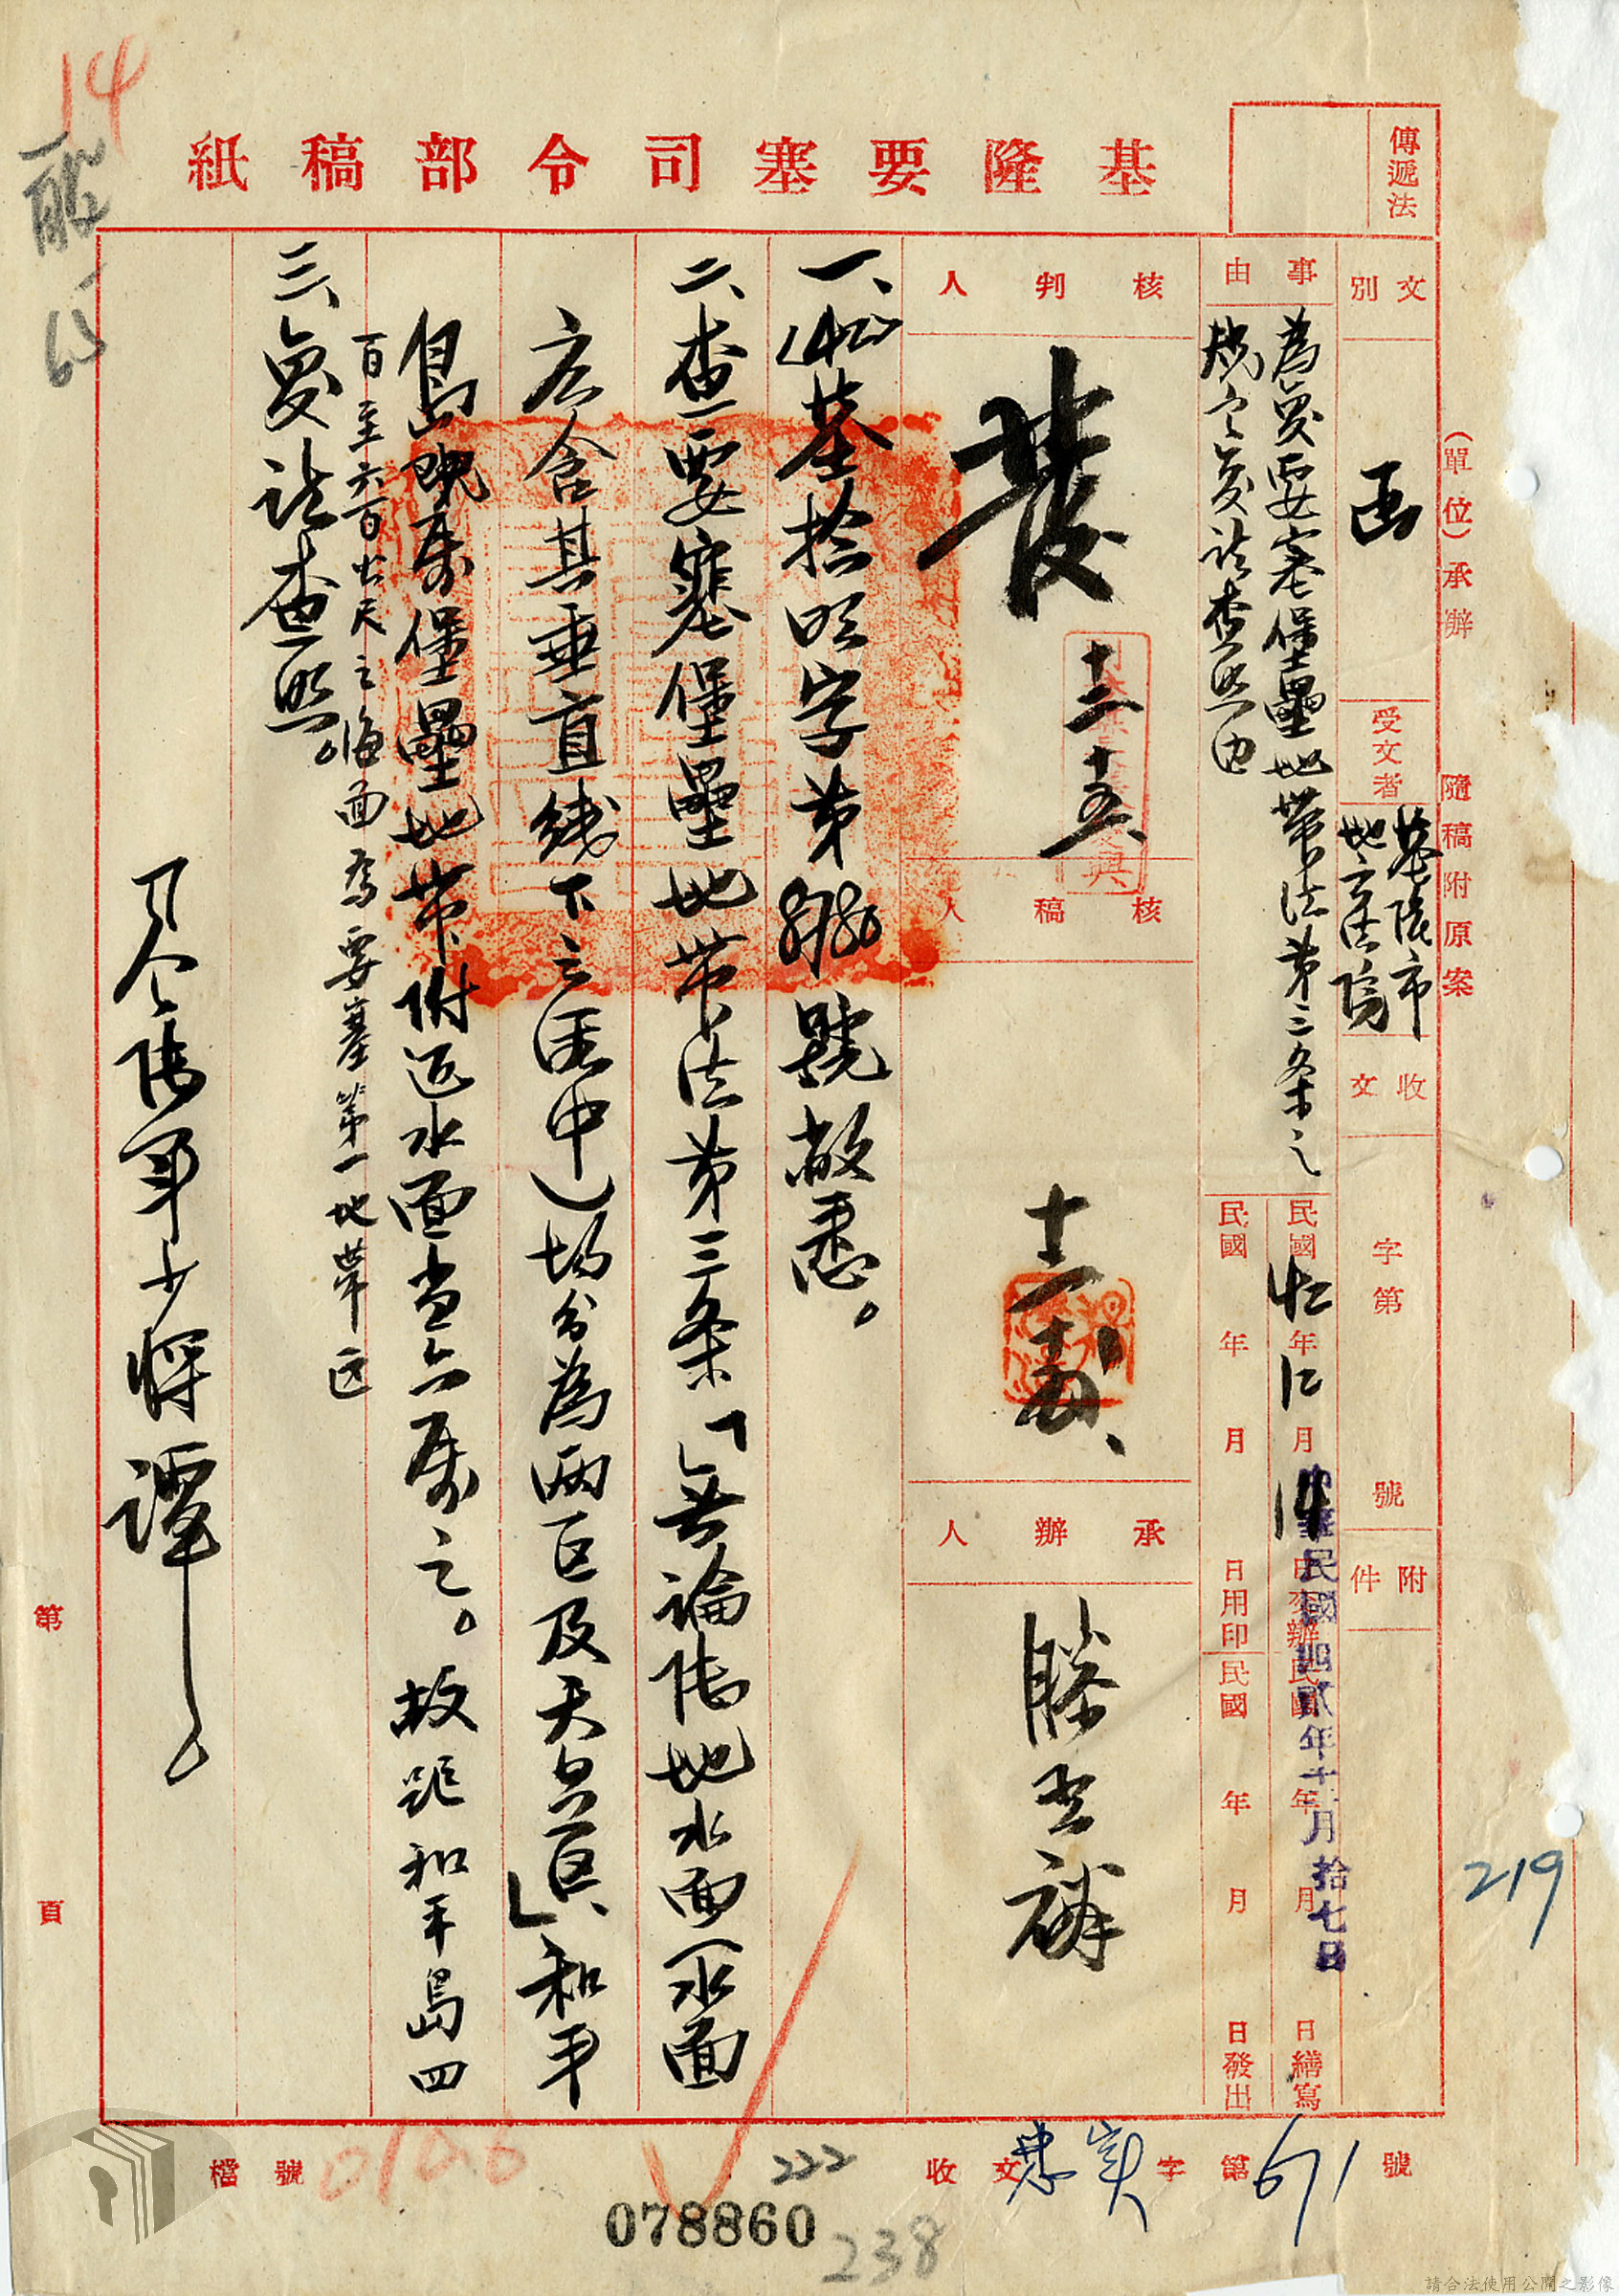 14
基隆要塞司令部稿紙
傳遞法
(單位)承辦 隨稿附原案
文別 函
受文者 基隆市地方法院
收文 字第 號
附件
事由
為復要塞堡壘地帶法第三条之
規定復請查照由
民國 年 月 日交辦
民國 年 月 日繕寫
民國 年 月 日用印
民國 年 月 日發出
中華民國四貳年十二月拾七日
核判人
發
十二、十五、
核稿人
十二、
承辦人
一、(42)基拾明字第 號敬悉。
二、查要塞堡壘地帶法第三条「無論陸地水面(水面
应含其垂直綫下之海中)均分為兩区及天空区、」和平
島既屬堡壘地帶附近水面當亦屬之。故距和平島四
百至六百公尺之海面為要塞第一地帶区
三、復請查照。
司令陸軍少將譚
第 頁
219
檔號
收文 字第671號
222
078860
238
請合法使用公開之影像